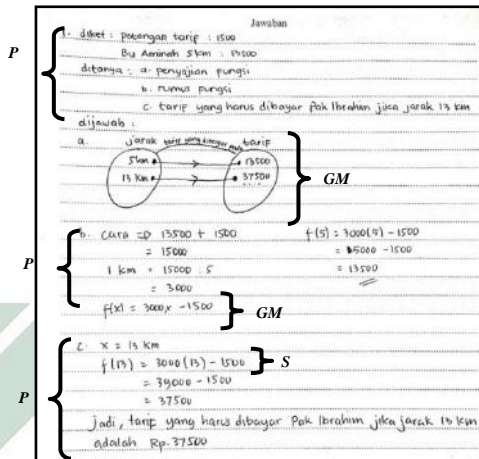 Jawaban
P
1. diket : potongan tarif : 1500
Bu Aminah 5km : 13500
ditanya : a. penyajian fungsi
b. rumus fungsi
c. tarif yang harus dibayar Pak Ibrahim jika jarak 13 km
dijawab :
a. jarak tarif yang dibayar pada tarif
5km 13500
13 km 37500
GM
P
b. cara => 13500 + 1500 f(5) = 3000(5) - 1500
= 15000 = 15000 - 1500
1 km = 15000 : 5 = 13500
= 3000
f(x) = 3000x - 1500
GM
P
c. x = 13 km
f(13) = 3000(13) - 1500
S
= 39000 - 1500
= 37500
jadi, tarif yang harus dibayar Pak Ibrahim jika jarak 13 km
adalah Rp. 37500